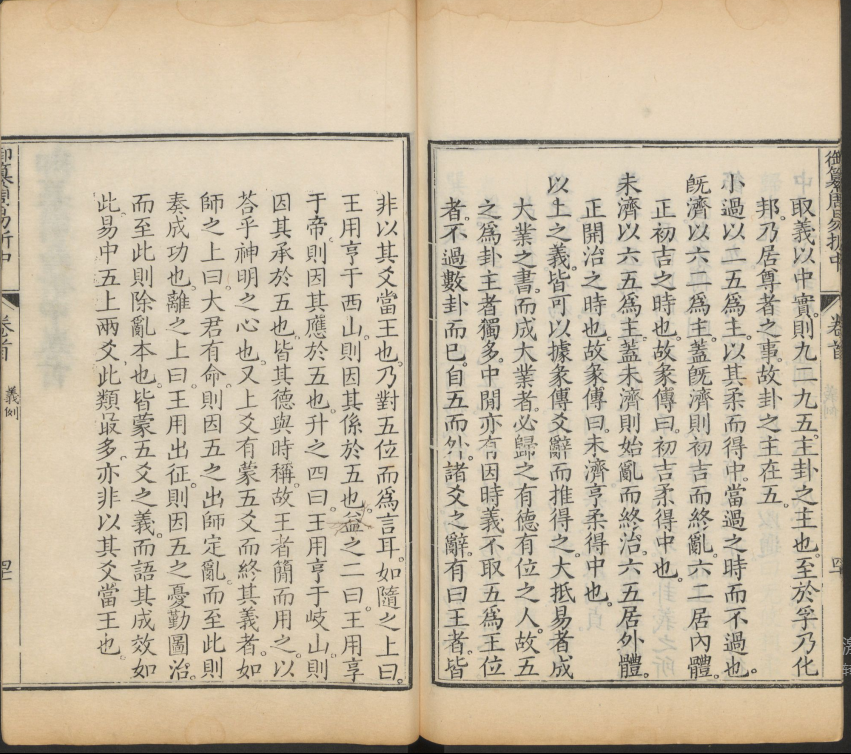 御纂周易折中
卷首
義例
取義以中實。則九二九五。主卦之主也。至於孚乃化
邦。乃居尊者之事。故卦之主在五。
小過以二五爲主。以其柔而得中。當過之時而不過也。
旣濟以六二爲主。蓋旣濟則初吉而終亂。六二居內體。
正初吉之時也。故彖傳曰。初吉柔得中也。
未濟以六五爲主。蓋未濟則始亂而終治。六五居外體。
正開治之時也。故彖傳曰。未濟亨柔得中也。
以上之義。皆可以據彖傳爻辭而推得之。大抵易者成
大業之書。而成大業者。必歸之有德有位之人。故五
之爲卦主者獨多。中閒亦有因時義不取五爲王位
者。不過數卦而已。自五而外。諸爻之辭。有曰王者。皆
非以其爻當王也。乃對五位而爲言耳。如隨之上曰。
王用亨于西山。則因其係於五也。益之二曰。王用享
于帝。則因其應於五也。升之四曰。王用亨于岐山。則
因其承於五也。皆其德與時稱。故王者簡而用之。以
荅乎神明之心也。又上爻有蒙五爻而終其義者。如
師之上曰。大君有命。則因五之出師定亂。而至此則
奏成功也。離之上曰。王用出征。則因五之憂勤圖治。
而至此則除亂本也。皆蒙五爻之義。而語其成效如
此。易中五上兩爻。此類最多。亦非以其爻當王也。
御纂周易折中
卷首
義例